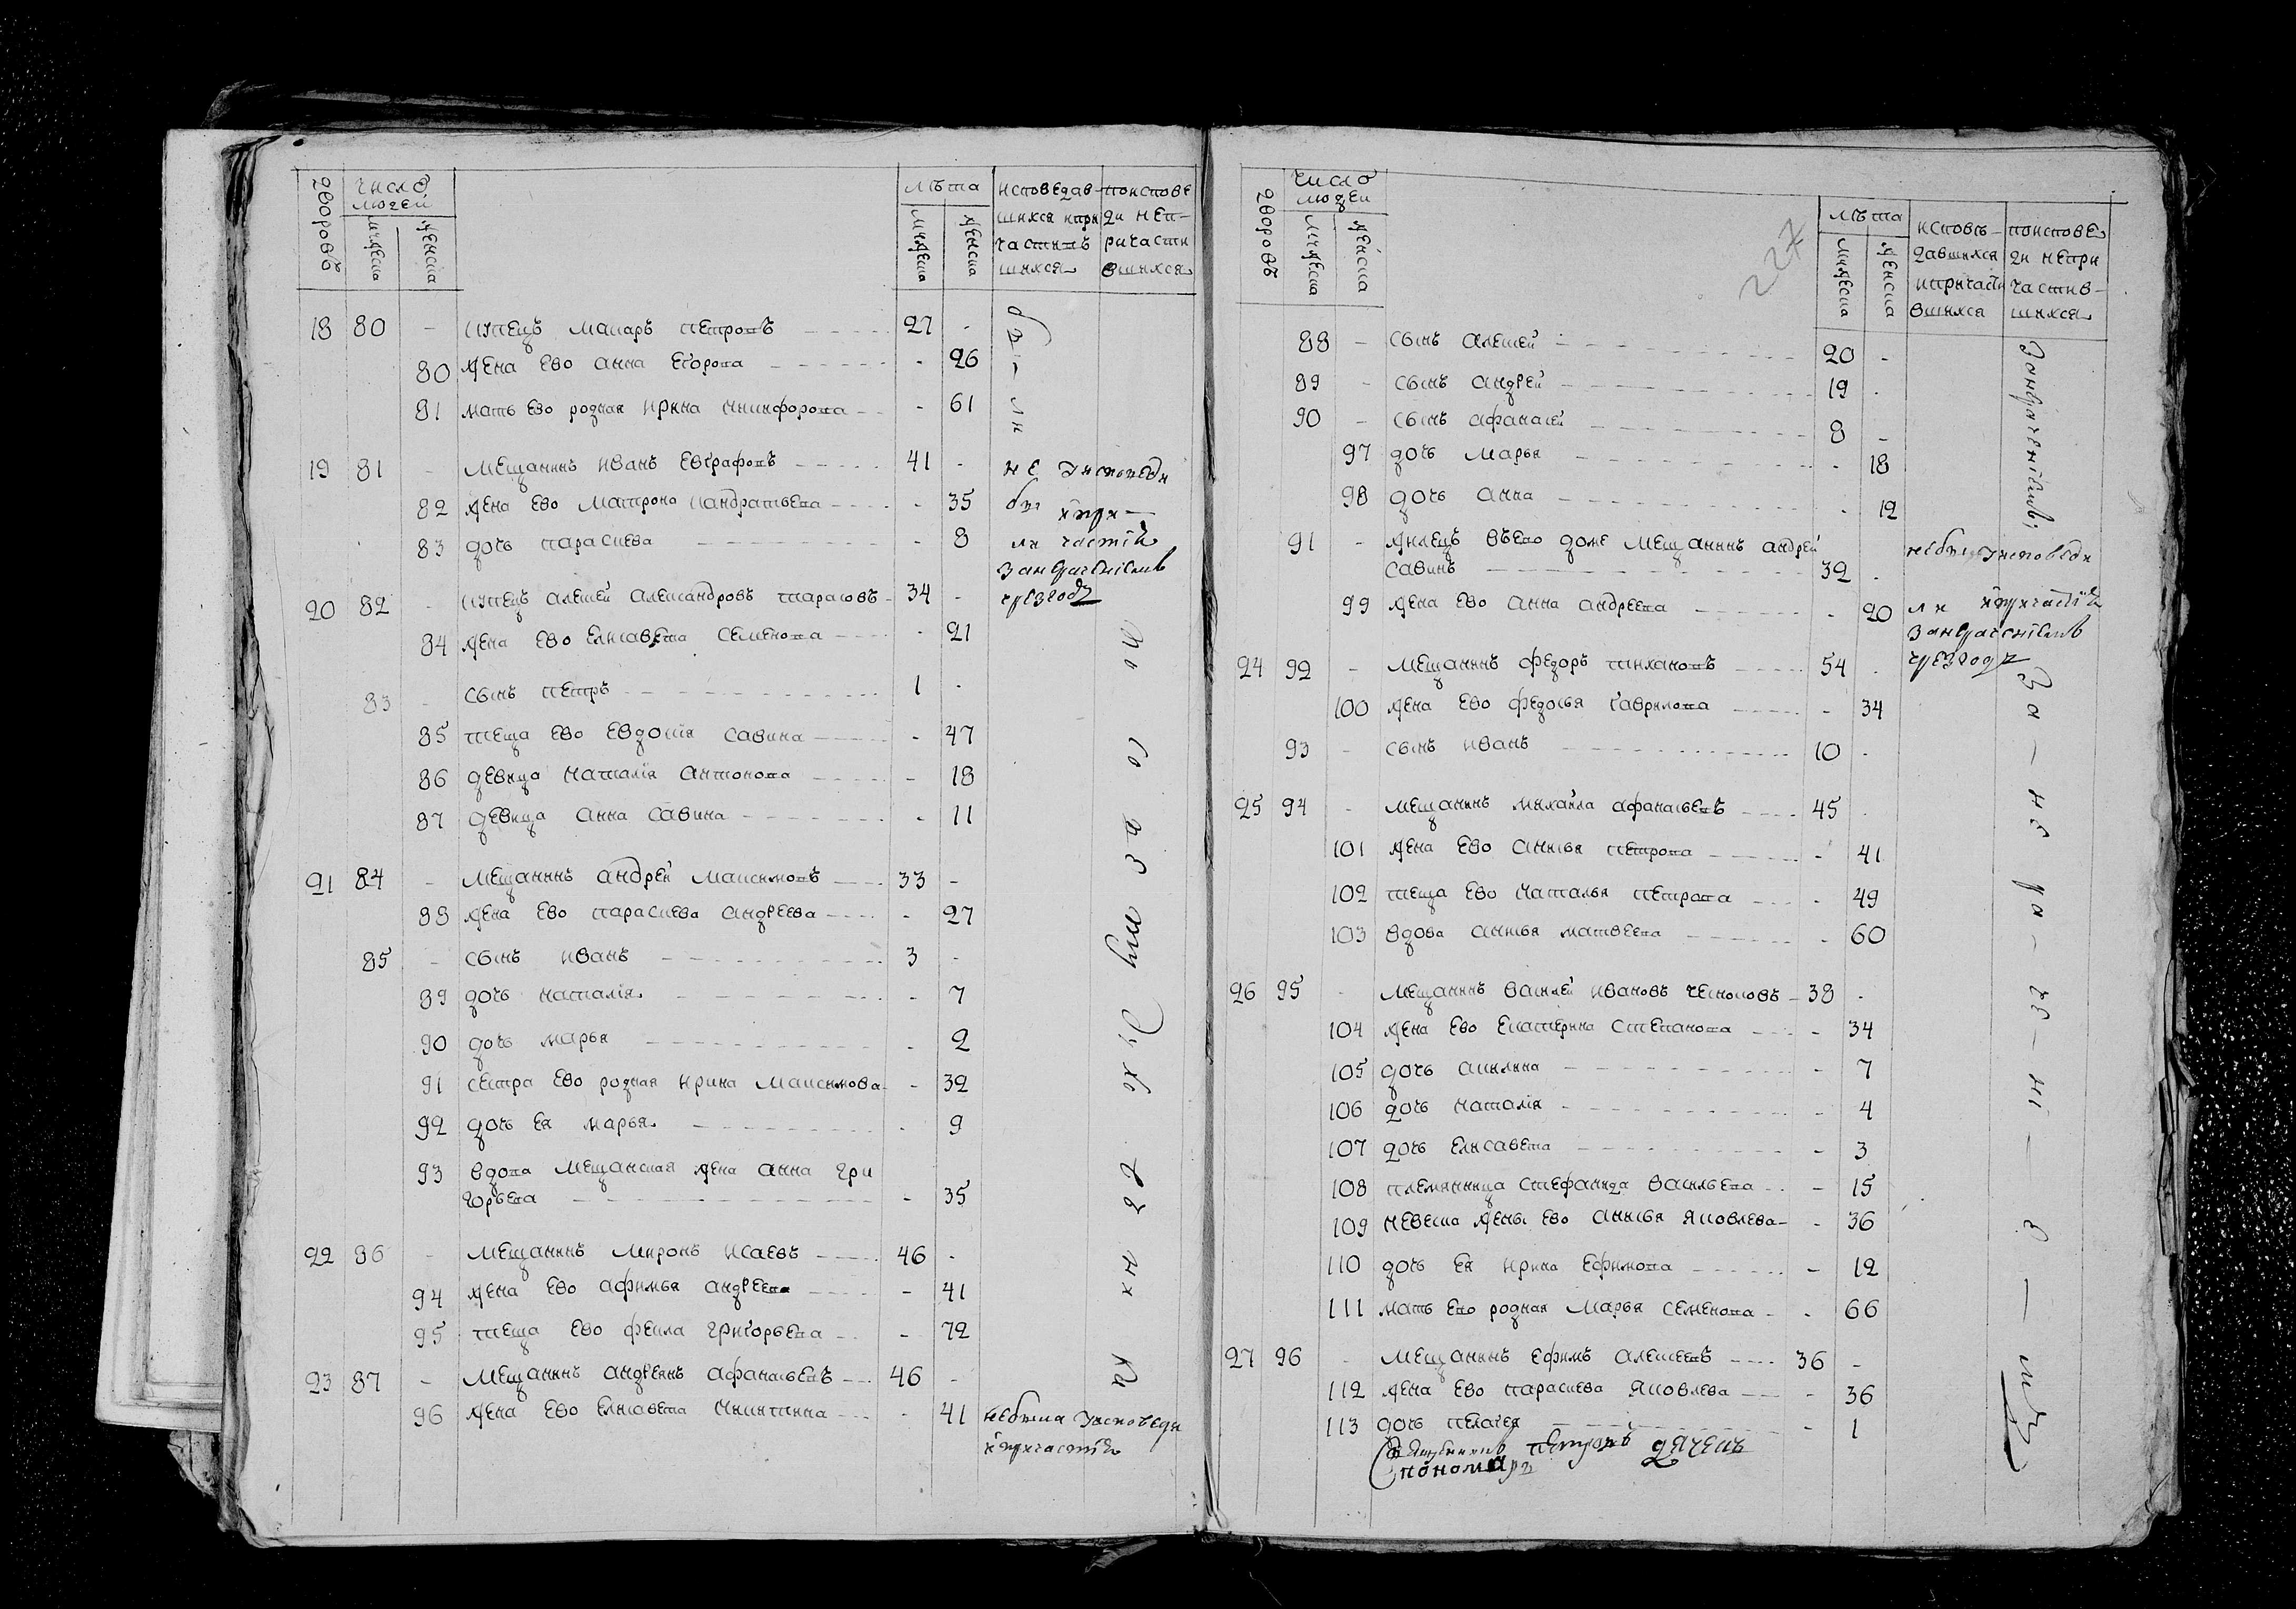 дворовъ число людей мужеска женска лѣта мужеска женска исповедав- поисповѣ
шихся ипри ди неп-
частивъ ричасти
шихся вшихся
18 80 - купецъ макаръ петровъ 27 -
80 жена ево анна егорова - 26
81 мать ево родная ирина никифорова - 61
19 81 - мещанинъ иванъ евграфовъ 41 - не уисповеди
82 жена ево матрона кандратьева - 35
83 дочь параскева - 8
20 82 - купецъ алексей александровъ тарасовъ 34 -
84 жена ево елисавета семенова - 21
83 - сынъ петръ 1 -
85 теща ево евдокия савина - 47
86 девица наталiя антонова - 18
87 девица анна савина - 11
21 84 - мещанинъ андрей максимовъ 33 -
88 жена ево параскева андреева - 27
85 - сынъ иванъ 3 -
89 дочь наталiя - 7
90 дочь марья - 2
91 сестра ево родная ирина максимова - 32
92 дочь ея марья - 9
93 вдова мещанская жена анна гри
горьева - 35
22 86 - мещанинъ миронъ исаевъ 46 -
94 жена ево афимья андреева - 41
95 теща ево фекла григорьева - 72
23 87 - мещанинъ андреянъ афанасьевъ 46 -
96 жена ево елисавета никитина - 41 небыла уисповеди
ипричастiя
227
дворовъ число людей мужеска женска лѣта мужеска женска исповѣ- поисповѣ
давшихся ди непри
ипричасти частив-
вшихся шихся
88 - сынъ алексей 20 -
89 - сынъ андрей 19 -
90 - сынъ афанасей 8 -
97 дочь марья - 18
98 дочь анна - 12
91 - жилецъ въево доме мещанинъ андрей
савинъ 32 -
99 жена ево анна андреева - 20
24 92 - мещанинъ федоръ тихановъ 54 -
100 жена ево федосья гаврилова - 34
93 - сынъ иванъ 10 -
25 94 - мещанинъ михайла афанасьевъ 45 -
101 жена ево анисья петрова - 41
102 теща ево наталья петрова - 49
103 вдова анисья матвеева - 60
26 95 - мещанинъ василей ивановъ чесноковъ 38 -
104 жена ево екатерина степанова - 34
105 дочь акилина - 7
106 дочь наталiя - 4
107 дочь елисавета - 3
108 племянница стефанида васильева - 15
109 невеска жены ево анисья яковлева - 36
110 дочь ея ирина ефимова - 12
111 мать ево родная марья семенова - 66
27 96 - мещанинъ ефимъ алексеевъ 36 -
112 жена ево параскева яковлева - 36
113 дочь пелагея - 1
Священникъ петровъ дячекъ
пономарь